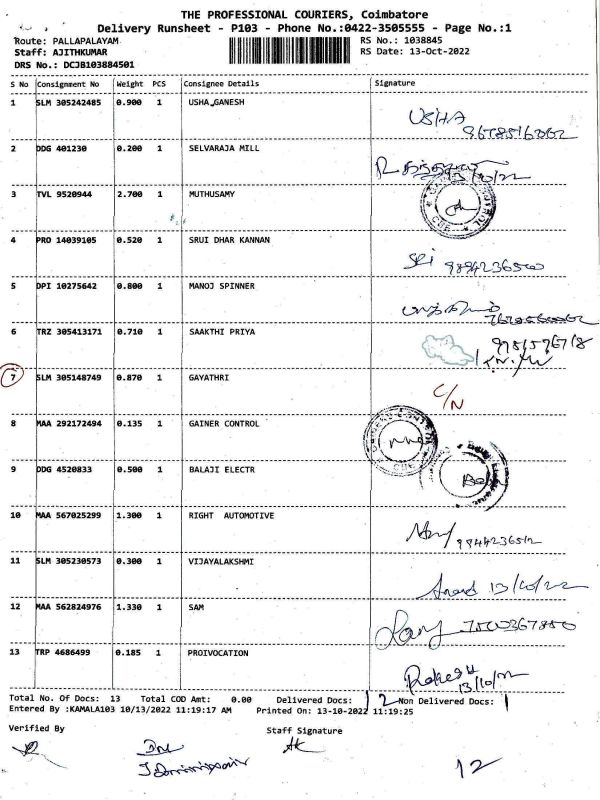 THE PROFESSIONAL COURIERS, Coimbatore
Delivery Runsheet - P103 - Phone No.:0422-3505555 - Page No.:1
Route: PALLAPALAYAM RS No.: 1038845
Staff: AJITHKUMAR RS Date: 13-Oct-2022
DRS No.: DCJB103884501
S No Consignment No Weight PCS Consignee Details Signature
1 SLM 305242485 0.900 1 USHA,GANESH USHA
2 DDG 401230 0.200 1 SELVARAJA MILL 13/10/22
3 TVL 9520944 2.700 1 MUTHUSAMY
4 PRO 14039105 0.520 1 SRUI DHAR KANNAN Sri 9894236500
5 DPI 10275642 0.800 1 MANOJ SPINNER
6 TRZ 305413171 0.710 1 SAAKTHI PRIYA
7 SLM 305148749 0.870 1 GAYATHRI C/N
8 MAA 292172494 0.135 1 GAINER CONTROL
9 DDG 4520833 0.500 1 BALAJI ELECTR
10 MAA 567025299 1.300 1 RIGHT AUTOMOTIVE
11 SLM 305230573 0.300 1 VIJAYALAKSHMI 13/10/22
12 MAA 562824976 1.330 1 SAM
13 TRP 4686499 0.185 1 PROIVOCATION Rakesh 13/10/22
Total No. Of Docs: 13 Total COD Amt: 0.00 Delivered Docs: 12 Non Delivered Docs: 1
Entered By :KAMALA103 10/13/2022 11:19:17 AM Printed On: 13-10-2022 11:19:25
Verified By Staff Signature
12